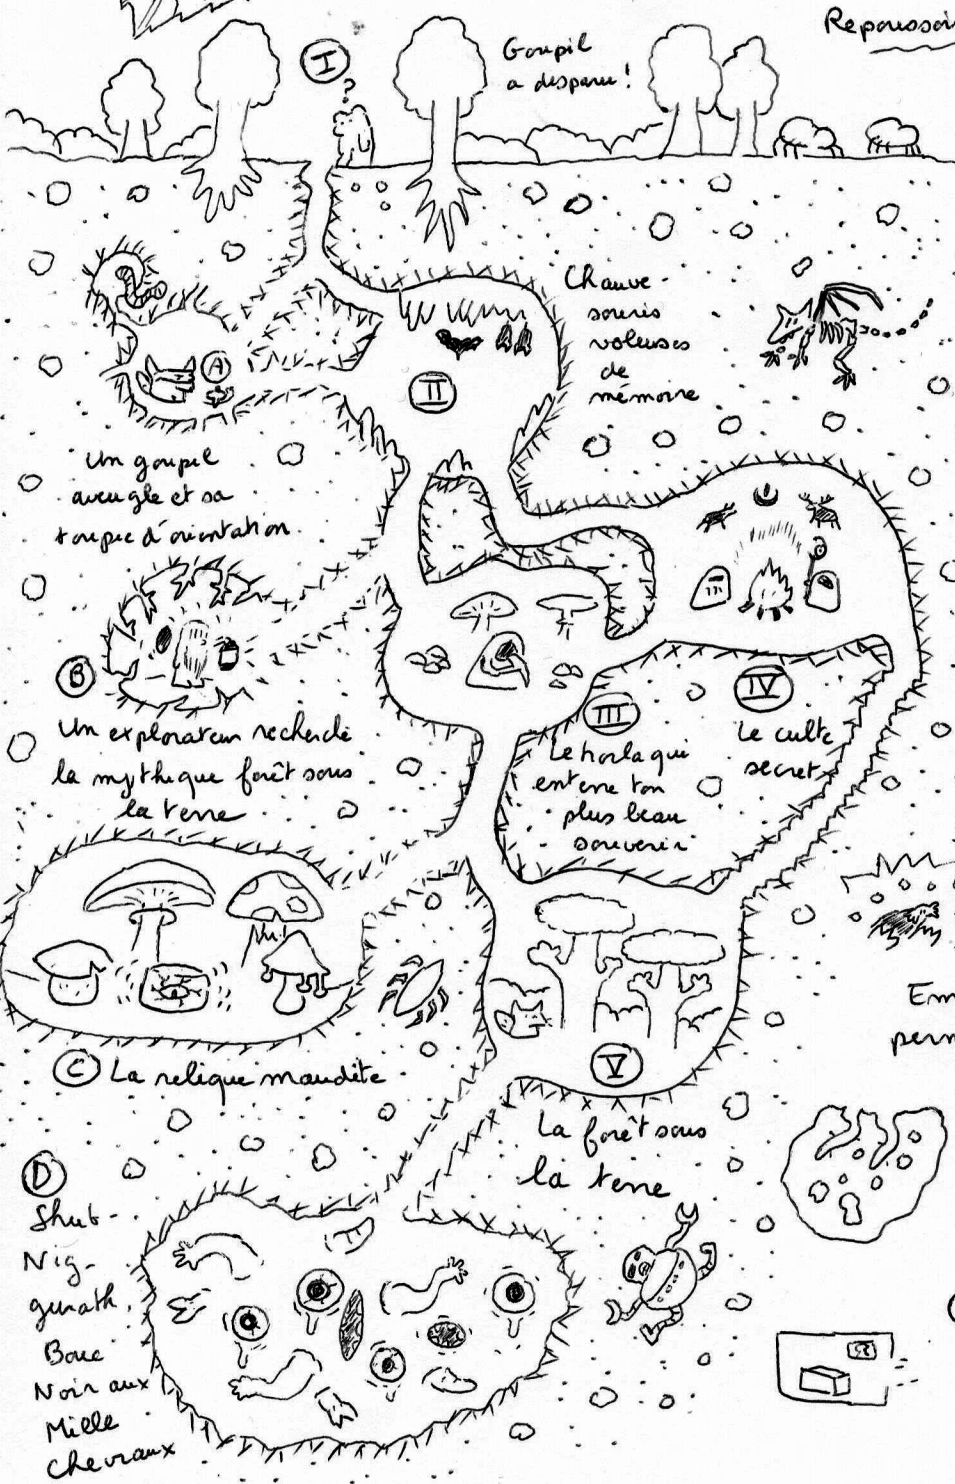 Repoussoi
I
Goupil
a disparu !
?
Chauve-
souris
voleuses
de
mémoire
A
II
Un goupil
aveugle et sa
toupie d'orientation
B
Un explorateur recherche
la mythique forêt sous
la terre
III
Le horla qui
enterre ton
plus beau
souvenir
IV
Le culte
secret
C La relique maudite
Em
perm
V
La forêt sous
la terre
D
Shub-
Nig-
gurath,
Bouc
Noir aux
Mille
chevraux